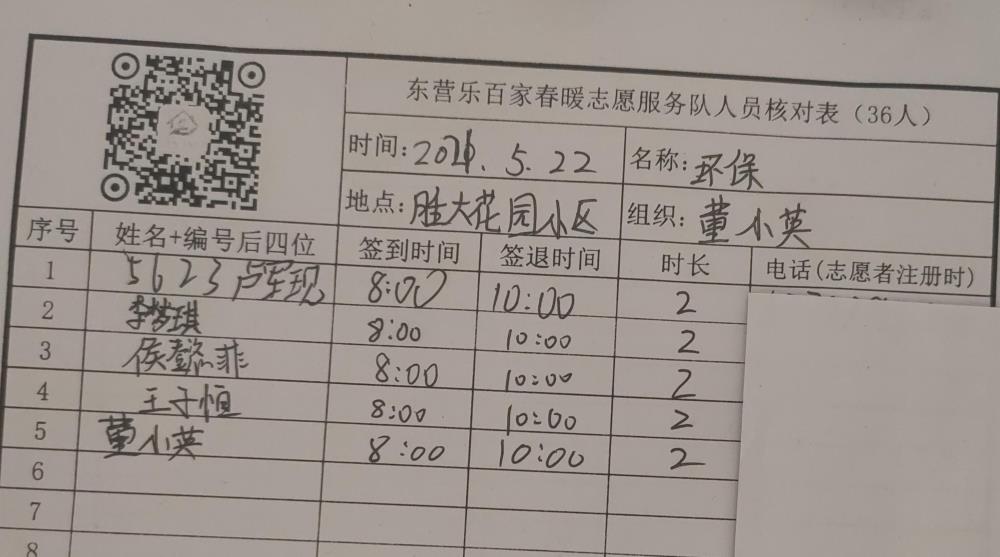 东营乐百家春暖志愿服务队人员核对表（36人）
时间：2021.5.22 名称：环保
地点：胜大花园小区 组织：董小英
序号 姓名+编号后四位 签到时间 签退时间 时长 电话(志愿者注册时)
1 5623 8:00 10:00 2
2 李梦琪 8:00 10:00 2
3 侯懿菲 8:00 10:00 2
4 王子恒 8:00 10:00 2
5 董小英 8:00 10:00 2
6
7
8